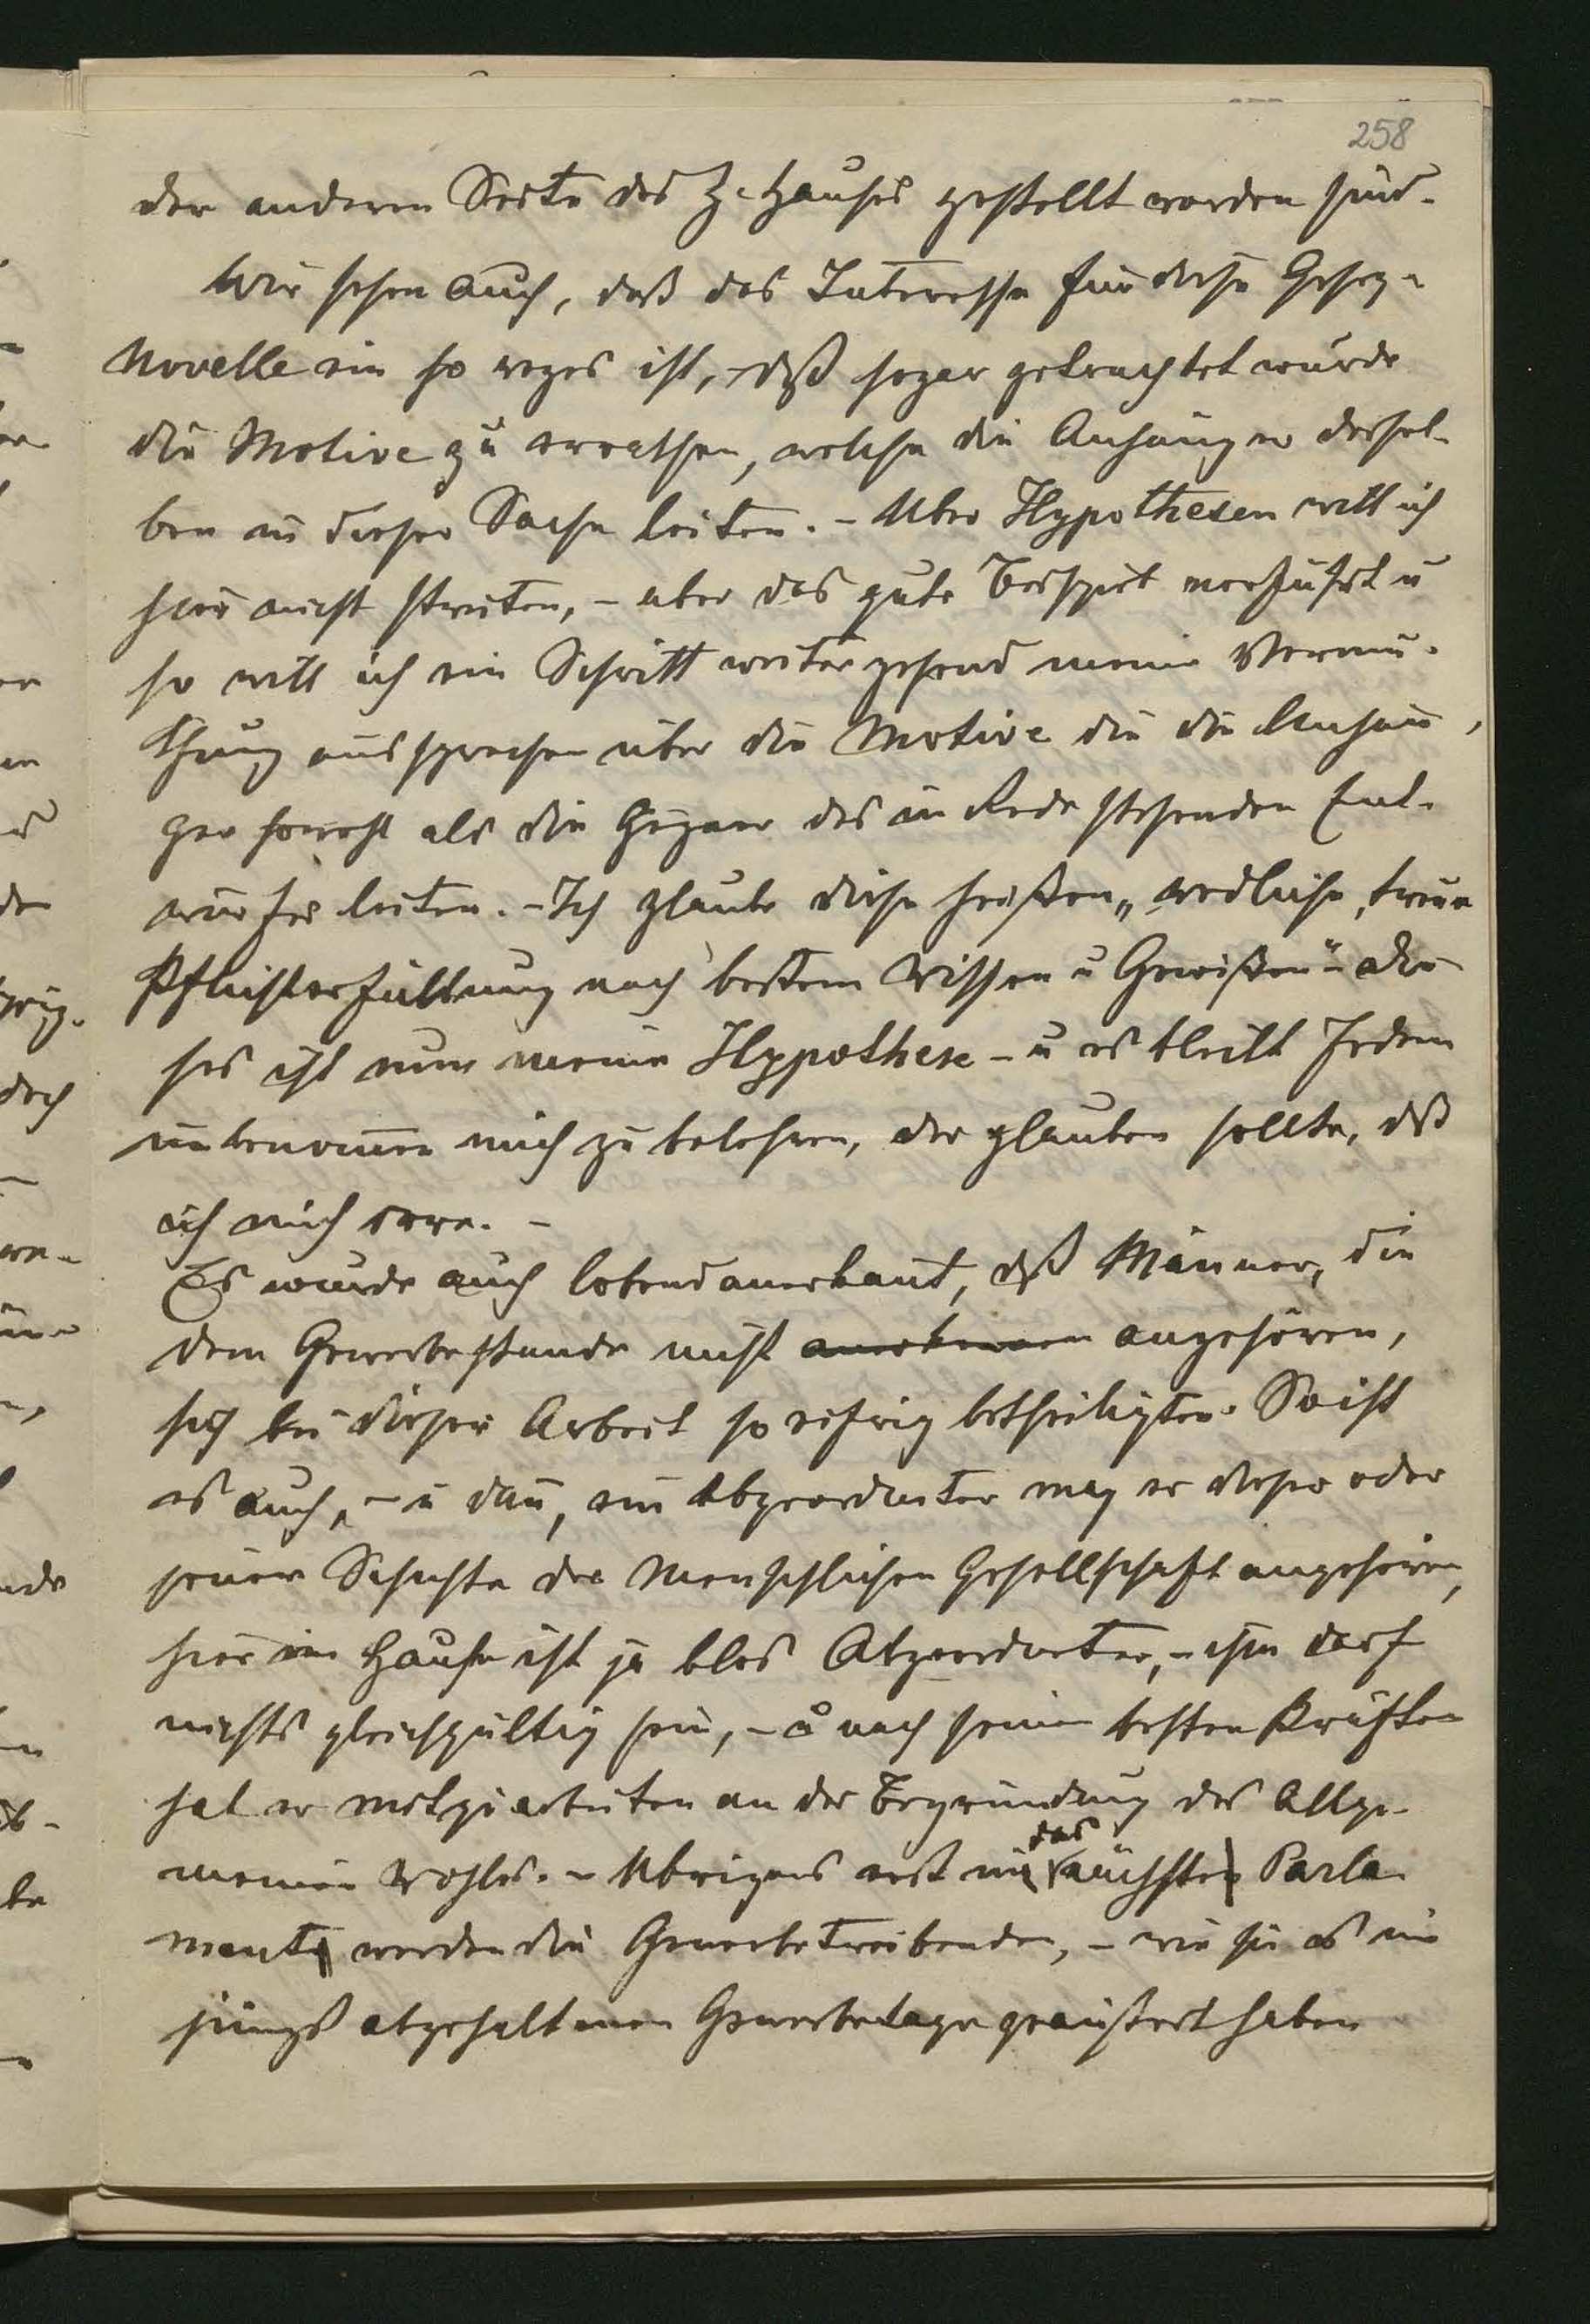 258
der anderen Seite des H. Hauses gestellt worden sind.
Wir sehen auch, daß das Interesse für diese Gesez-
Novelle ein so reges ist, daß sogar getrachtet wurde
die Motive zu errathen, welche die Anhänger dersel-
ben in dieser Sache leiten. – Über Hypothesen will ich
hier nicht streiten, – aber das gute Beispiel verführt u
so will ich ein Schritt weiter gehend meine Vermu-
thung aussprechen über die Motive die die Anhän-
ger sowohl als die Gegner des in Rede stehenden Ent-
wurfes leiten. – Ich glaube diese heißen „redliche, treue
Pflichterfüllung nach bestem Wissen u Gewißen“ – die-
ses ist nun meine Hypothese – u es bleibt Jedem
unbenom̄en mich zu belehren, der glauben sollte, dß
ich mich irre. –
Es wurde auch lobend anerkan̄t, dß Männer, die
dem Gewerbestande nicht anerkennen angehören,
sich bei dieser Arbeit so eifrig betheiligten. So ist
es auch, – u dan̄, ein Abgeordneter mag er dieser oder
jener Schichte der Menschlichen Gesellschaft angehören,
hier im Hause ist ja blos Abgeordneter, – ihm darf
nichts gleichgültig sein, – u nach seinen besten Kräften
hat er mitzuarbeiten an der Begründung des Allge-
meinen Wohles. – Übrigens erst in
das
nächsten Parla-
mente werden die Gewerbetreibenden, – wie sie es im
jüngst abgehaltenen Gewerbetage geäußert haben